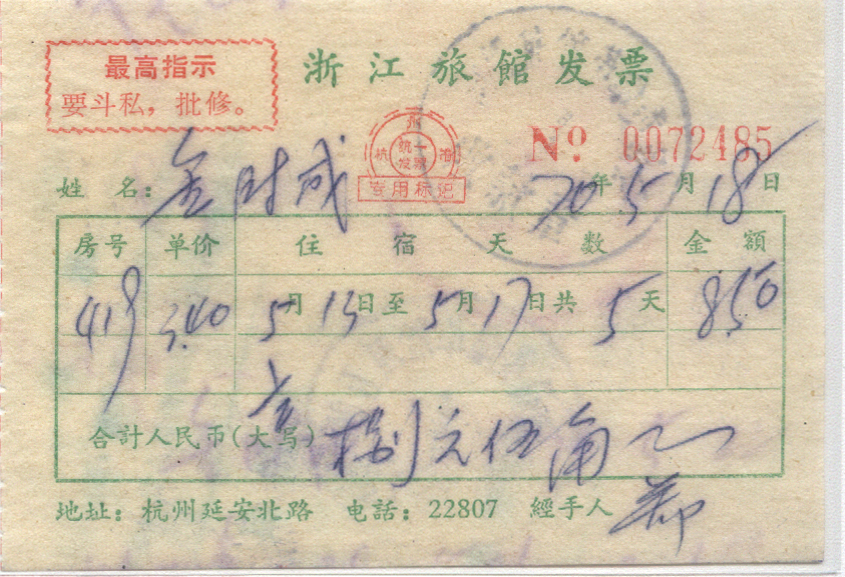 最高指示
要斗私，批修。
浙江旅館发票
杭州市
統一
发票
专用标记
No. 0072485
姓 名： 金时成 70年5月18日
房号 单价 住宿天数 金額
419 3.40 5月13日至5月17日共5天 8.50
合計人民币(大写) 捌元伍角
地址：杭州延安北路 电話：22807 經手人